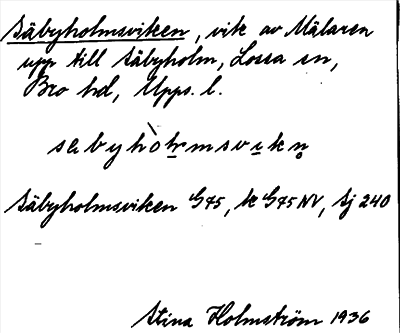 Säbyholmsviken, vik av Mälaren
upp till Säbyholm, Lossa sn,
Bro hd, Upps. l.
säbyhòlmsvikn̥
Säbyholmsviken G45, k G45 NV, Sj 240
Stina Holmström 1936